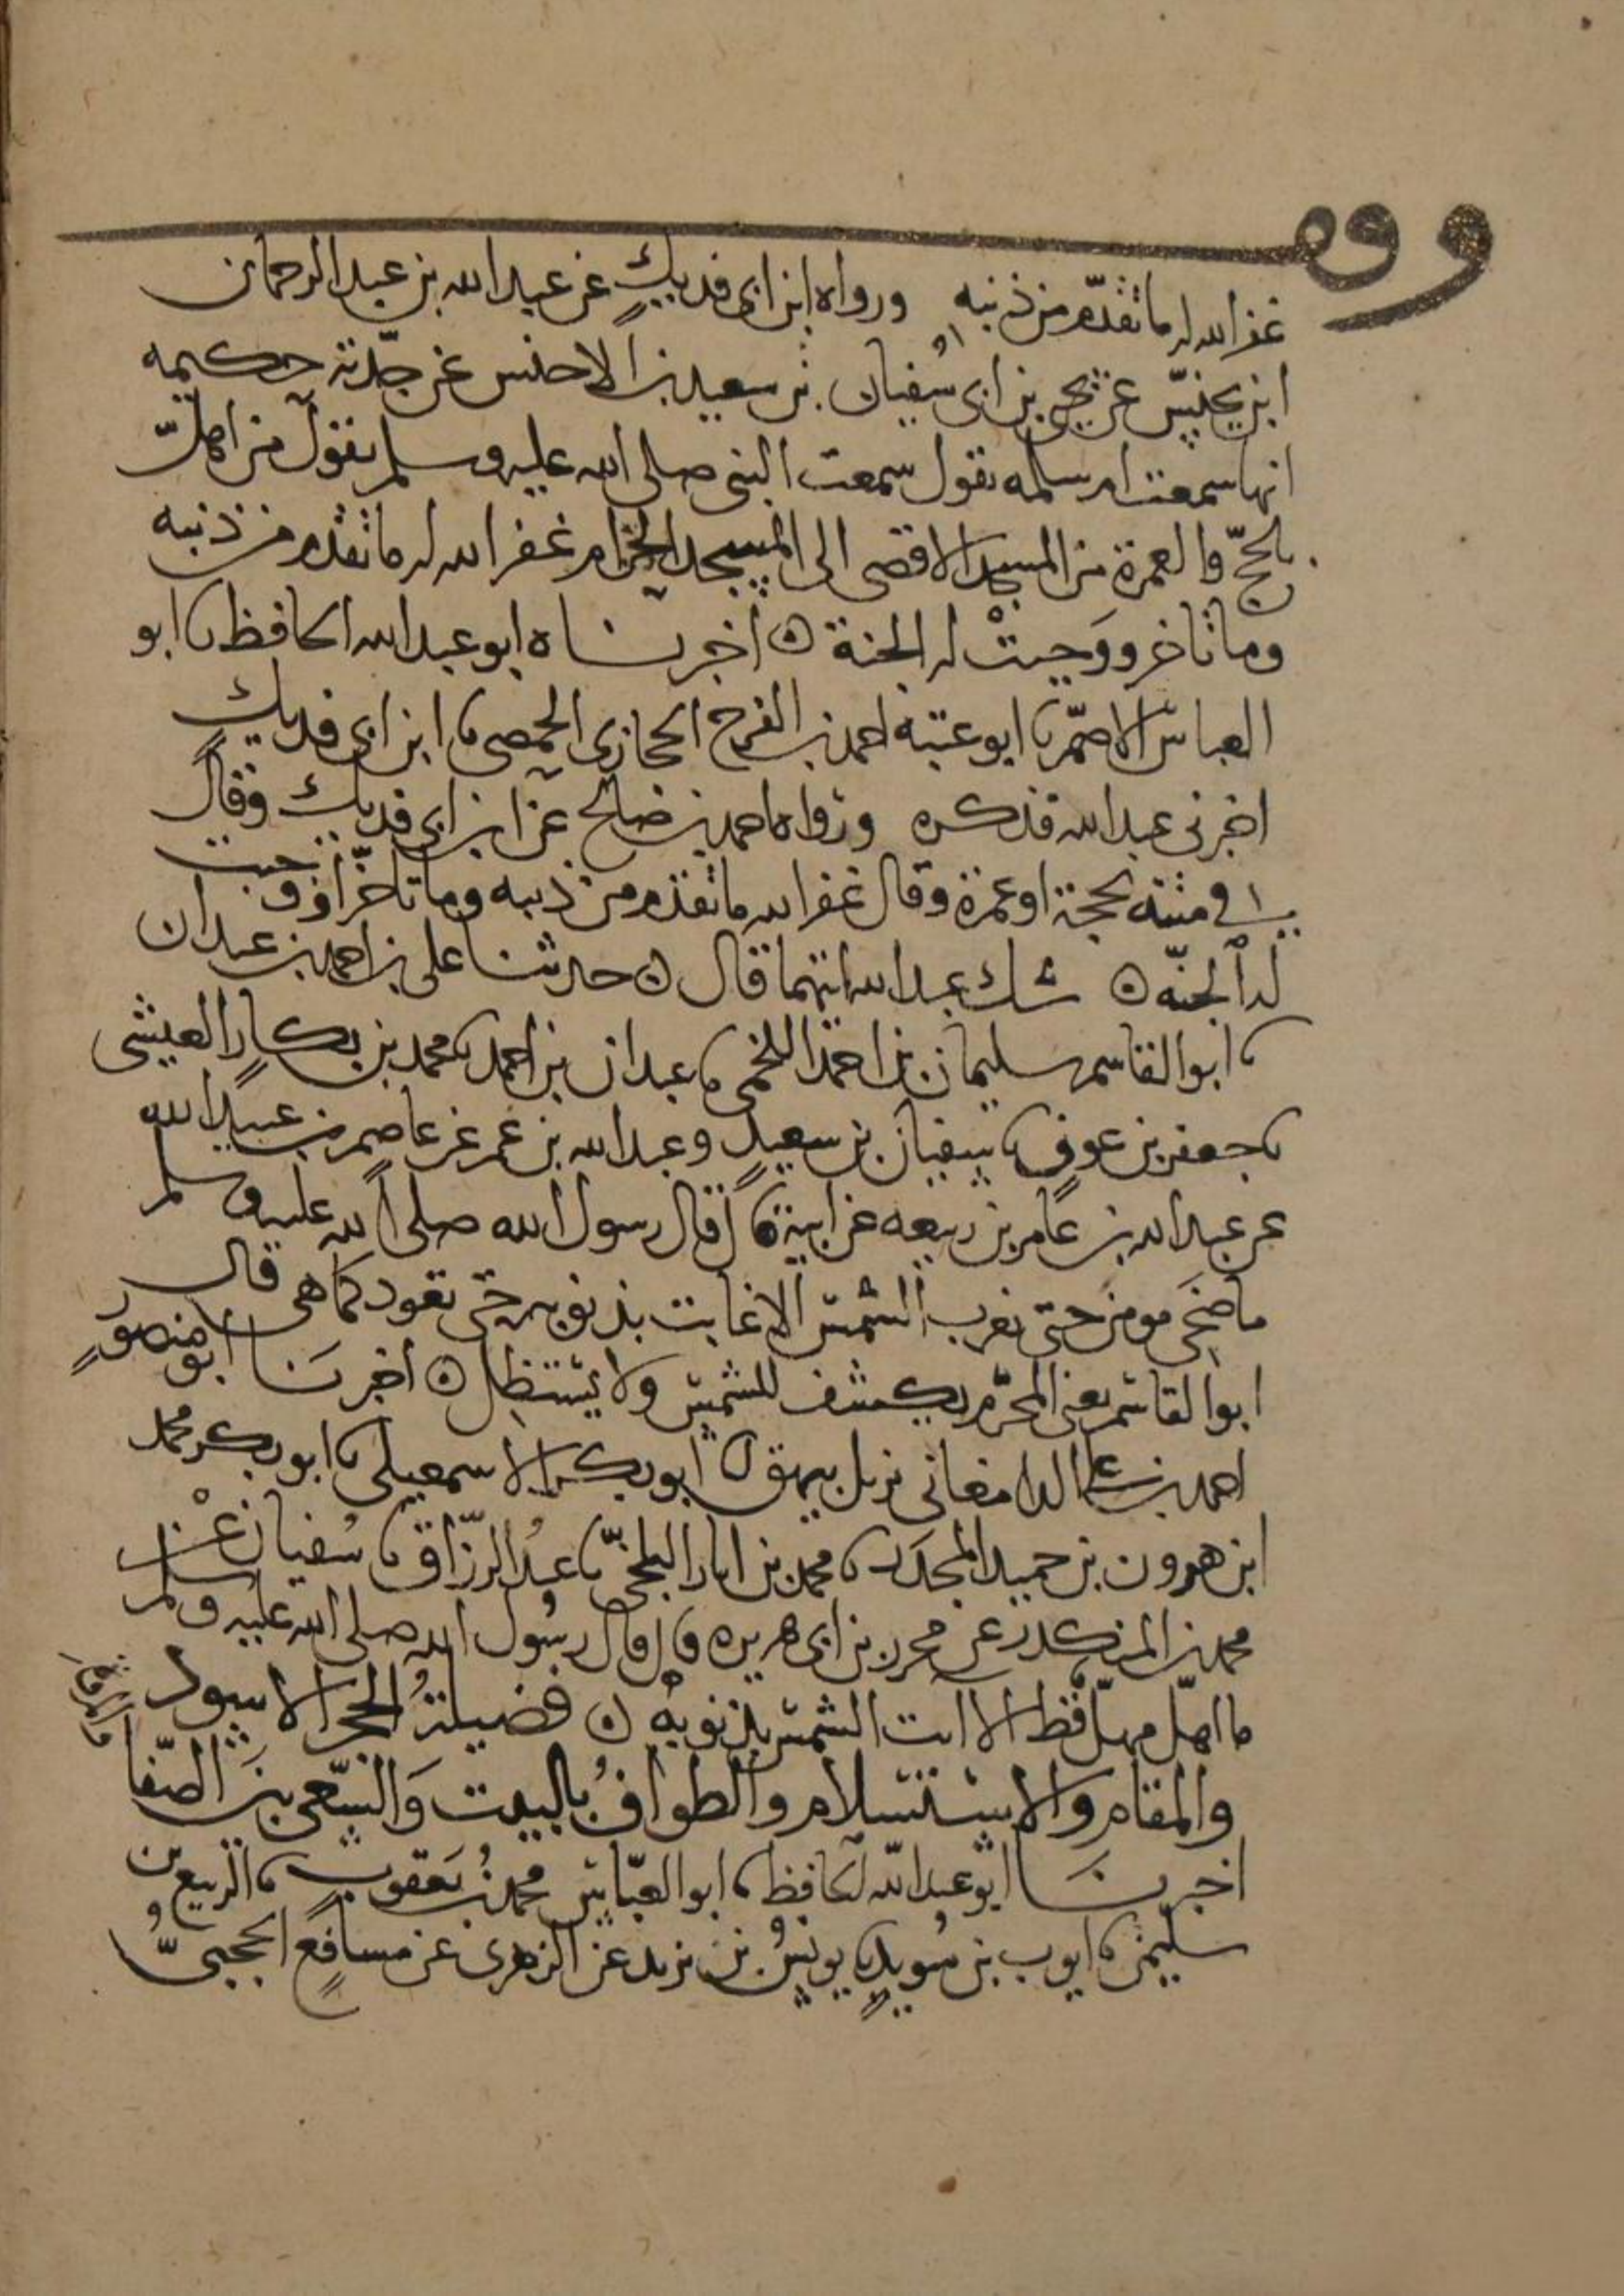 وقف
غفر الله له ما تقدم من ذنبه ورواه ابن ابى فديك عن عبد الله بن عبد الرحمان
ابن يحنس عن يحيى بن ابى سفيان بن سعيد بن الاخنس عن جدته حكيمه
انها سمعت ام سلمه تقول سمعت النبى صلى الله عليه وسلم يقول من اهل
بالحج والعمرة من المسجد الاقصى الى المسجد الحرام غفر الله له ما تقدم من ذنبه
وما تاخر ووجبت له الجنة ه اخبرناه ابو عبد الله الحافظ نا ابو
العباس الاصم نا ابو عتبه احمد بن الفرج الحجازى الحمصى نا ابن ابى فديك
اخبرنى عبد الله فذكره ورواه احمد بن صالح عن ابن ابى فديك وقال
فى متنه بحجة او عمرة وقال غفر الله ما تقدم من ذنبه وما تاخر او وجبت
له الجنة ه شك عبد الله ايتهما قال ه حدثنا على بن احمد بن عبدان
نا ابو القاسم سليمان بن احمد اللخمى نا عبدان بن احمد نا محمد بن بكار العيشى
نا جعفر بن عون نا سفيان بن سعيد وعبد الله بن عمر عن عاصم بن عبيد الله
عن عبد الله بن عامر بن ربيعه عن ابيه قال قال رسول الله صلى الله عليه وسلم
ما ضحى مومن حتى تغرب الشمس الا غابت بذنوبه حتى تعود كما هى قال
ابو القاسم يعنى المحرم يكشف للشمس ولا يستظل ه اخبرنا ابو منصور
احمد بن على الدامغانى نزيل بيهق نا ابو بكر الاسمعيلى نا ابو بكر محمد
ابن هرون بن حميد المجدر نا محمد بن ابان البلخى نا عبد الرزاق نا سفيان عن
محمد بن المنكدر عن محرر بن ابى هريره قال قال رسول الله صلى الله عليه وسلم
ما اهل مهل قط الا ابت الشمس بذنوبه ه فضيلة الحجر الاسود
والمقام والاستسلام والطواف بالبيت والسعى بين الصفا والمروة
اخبرنا ابو عبد الله الحافظ نا ابو العباس محمد بن يعقوب نا الربيع بن
سليمن نا ايوب بن سويد نا يونس بن يزيد عن الزهرى عن مسافع الحجبى